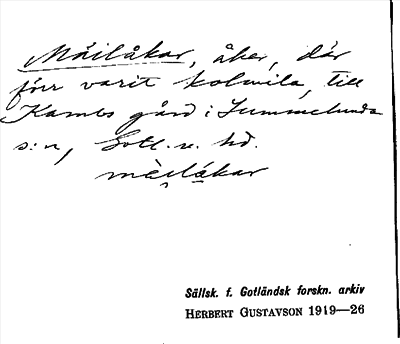 Mäilåkar, åker, där
förr varit kolmila, till
Kambs gård i Lummelunda
s:n, Gotl. n. hd.
mèilåkar
Sällsk. f. Gotländsk forskn. arkiv
HERBERT GUSTAVSON 1919—26